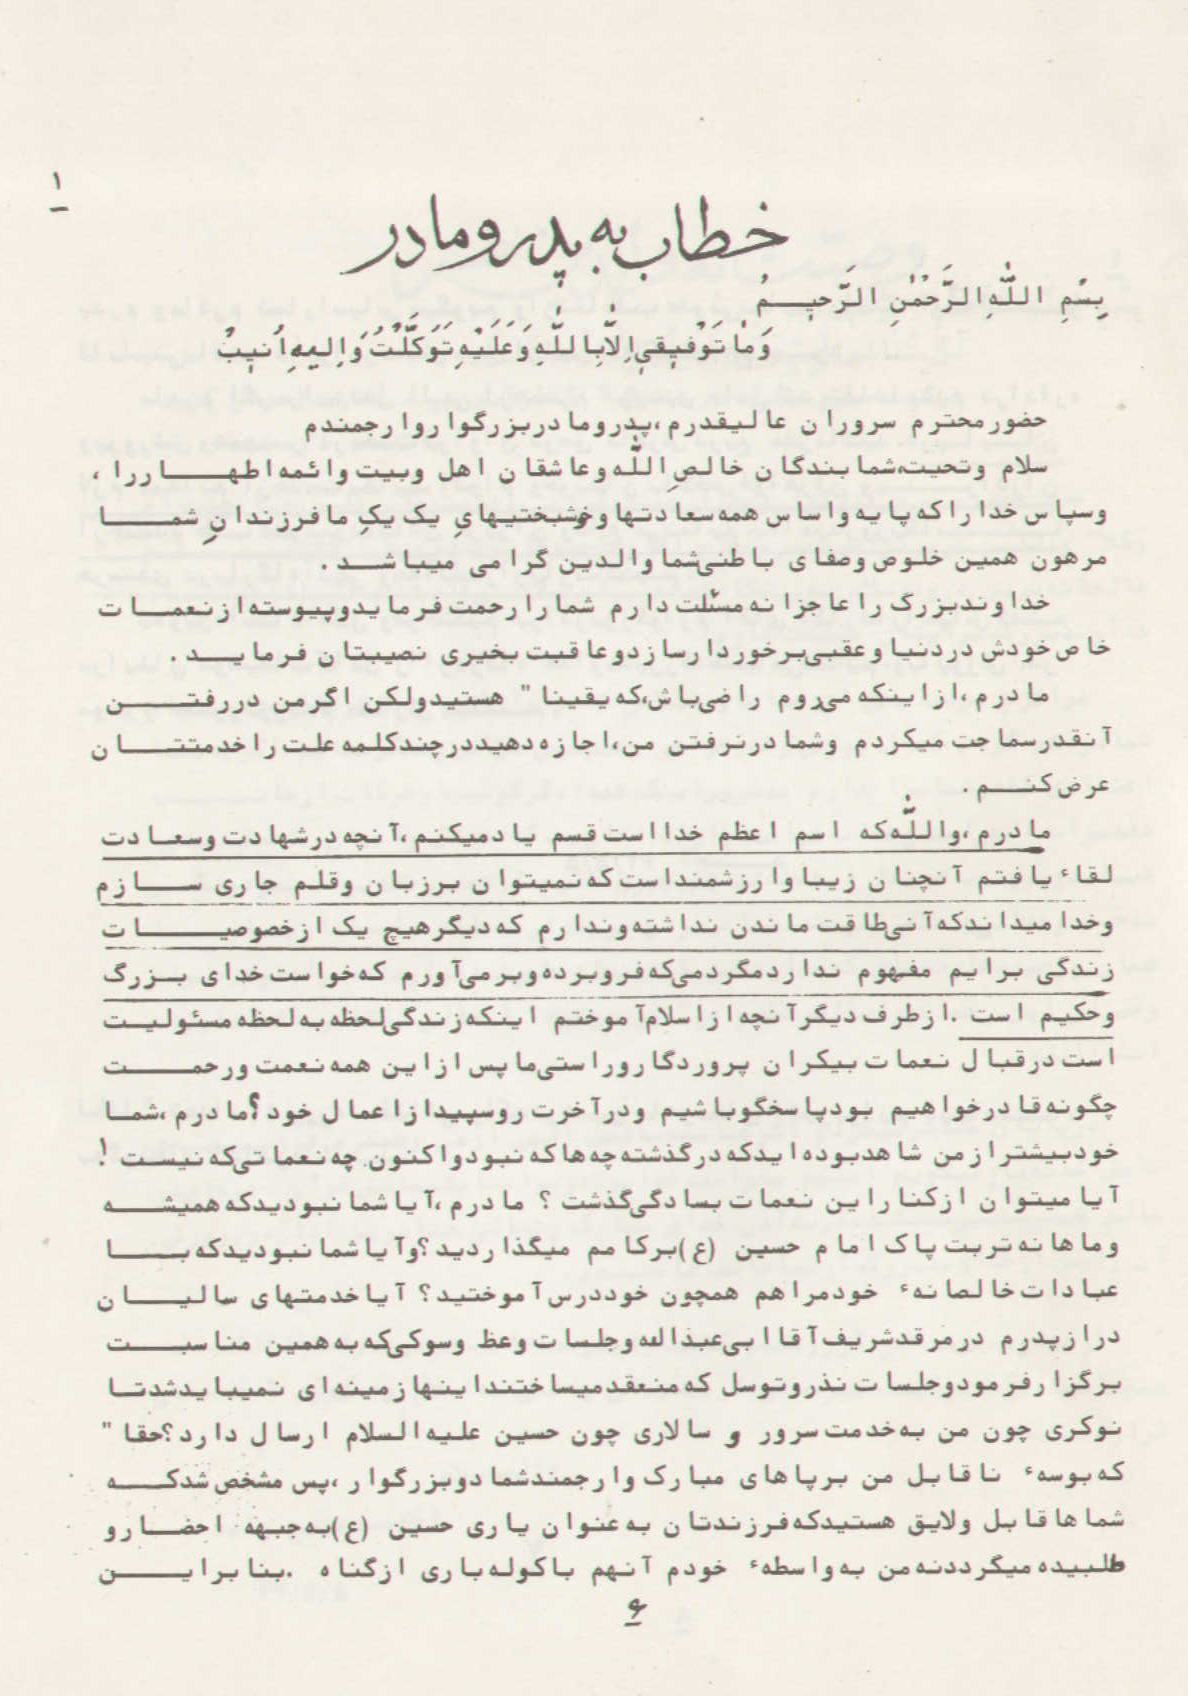 ١
خطاب به پدر و مادر
بِسْمِ اللّٰهِ الرَّحْمٰنِ الرَّحیــمُ
وَمٰا تَوْفیقی اِلاّٰ بِاللّٰهِ وَعَلَیْهِ تَوَکَّلْتُ وَاِلیهِ اُنیبُ
حضور محترم سروران عالیقدرم ،پدر و مادر بزرگوار و ارجمندم
سلام وتحیت،شما بندگان خالصِ اللّه و عاشقان اهل وبیت وائمه اطهـــار را ،
وسپاس خدا را که پایه واساس همه سعادتها وخوشبختیهایِ یک یکِ ما فرزندانِ شمــا
مرهون همین خلوص وصفای باطنی‌شما والدین گرامی میباشـد .
خداوند بزرگ را عاجزانه مسئلت دارم شما را رحمت فرماید و پیوسته از نعمــات
خاص خودش در دنیا وعقبی‌برخوردار سازد و عاقبت بخیری نصیبتان فرمایــد .
مادرم ،از اینکه می‌روم راضی‌باش،که یقینا " هستید ولکن اگر من در رفتــن
آنقدر سماجت میکردم وشما در نرفتن من،اجازه دهید در چند کلمه علت را خدمتتــان
عرض کنــم .
مادرم ،واللّه که اسم اعظم خدا است قسم یاد میکنم ،آنچه در شهادت وسعادت
لقاء یافتم آنچنان زیبا وارزشمند است که نمیتوان بر زبان وقلم جاری ســازم
وخدا میداند که آنی‌طاقت ماندن نداشته وندارم که دیگر هیچ یک از خصوصیــات
زندگی برایم مفهوم ندارد مگر دمی‌که فرو برده و بر می‌آورم که خواست خدای بــزرگ
وحکیم است .از طرف دیگر آنچه از اسلام آموختم اینکه زندگی‌لحظه به لحظه مسئولیت
است در قبال نعمات بیکران پروردگار و راستی‌ما پس از این همه نعمت ورحمــت
چگونه قادر خواهیم بود پاسخگو باشیم ودر آخرت روسپید از اعمال خود ؟مادرم ،شمــا
خود بیشتر از من شاهد بوده اید که در گذشته چه ها که نبود و اکنون چه نعماتی‌که نیست !
آیا میتوان از کنار این نعمات بسادگی‌گذشت ؟ مادرم ،آیا شما نبودید که همیشــه
وماهانه تربت پاک امام حسین (ع)بر کامم میگذاردید ؟وآیا شما نبودید که بــا
عبادات خالصانهء خود مرا هم همچون خود درس آموختید ؟ آیا خدمتهای سالیــان
دراز پدرم در مرقد شریف آقا ابی‌عبدالله وجلسات وعظ وسوکی‌که به همین مناسبــت
برگزار فرمود و جلسات نذر و توسل که منعقد میساختند اینها زمینه ای نمیباید شد تــا
نوکری چون من به خدمت سرور و سالاری چون حسین علیه السلام ارسال دارد ؟حقا "
که بوسهء ناقابل من بر پاهای مبارک وارجمند شما دو بزرگوار ،پس مشخص شد کــه
شماها قابل ولایق هستید که فرزندتان به عنوان یاری حسین (ع)به جبهه احضار و
طلبیده میگردد نه من به واسطهء خودم آنهم با کوله باری از گناه .بنابرایــن
۶